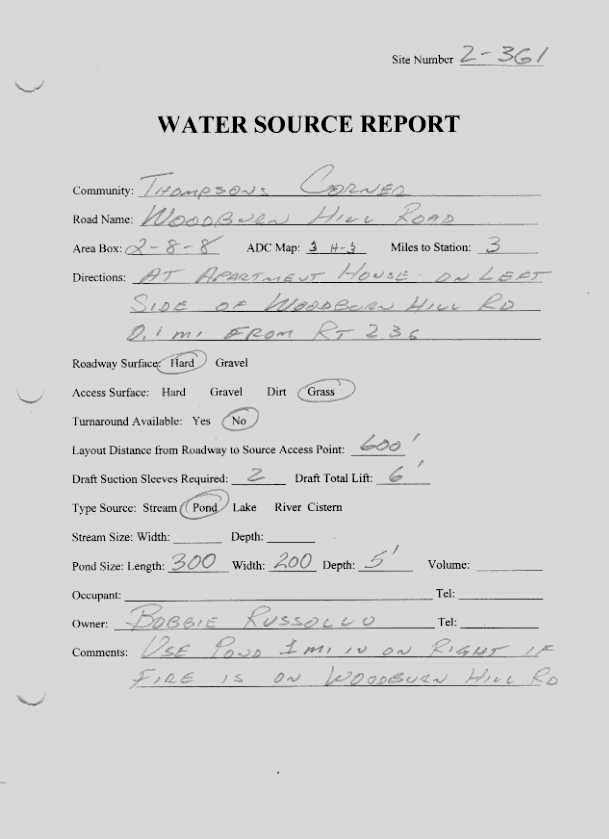 Site Number 2-361
WATER SOURCE REPORT
Community: THOMPSONS CORNER
Road Name: WOODBURN HILL ROAD
Area Box: 2-8-8 ADC Map: 3 H-3 Miles to Station: 3
Directions: AT APARTMENT HOUSE ON LEFT
SIDE OF WOODBURN HILL RD
0.1 MI FROM RT 236
Roadway Surface: Hard Gravel
Access Surface: Hard Gravel Dirt Grass
Turnaround Available: Yes No
Layout Distance from Roadway to Source Access Point: 600'
Draft Suction Sleeves Required: 2 Draft Total Lift: 6'
Type Source: Stream Pond Lake River Cistern
Stream Size: Width: Depth:
Pond Size: Length: 300 Width: 200 Depth: 5' Volume:
Occupant: Tel:
Owner: BOBBIE RUSSOLLO Tel:
Comments: USE POND 1 MI IN ON RIGHT IF
FIRE IS ON WOODBURN HILL RD